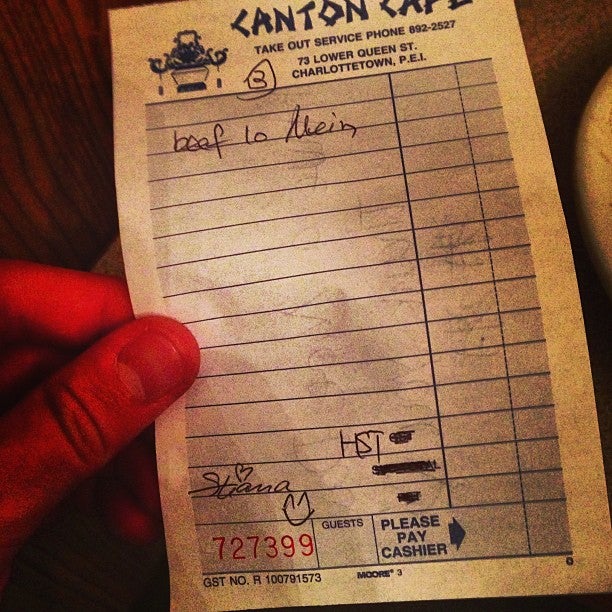 CANTON CAFE
TAKE OUT SERVICE PHONE 892-2527
73 LOWER QUEEN ST.
CHARLOTTETOWN, P.E.I.
3
beef lo Mein
HST
727399
GUESTS
PLEASE
PAY
CASHIER
GST NO. R 100791573
MOORE® 3